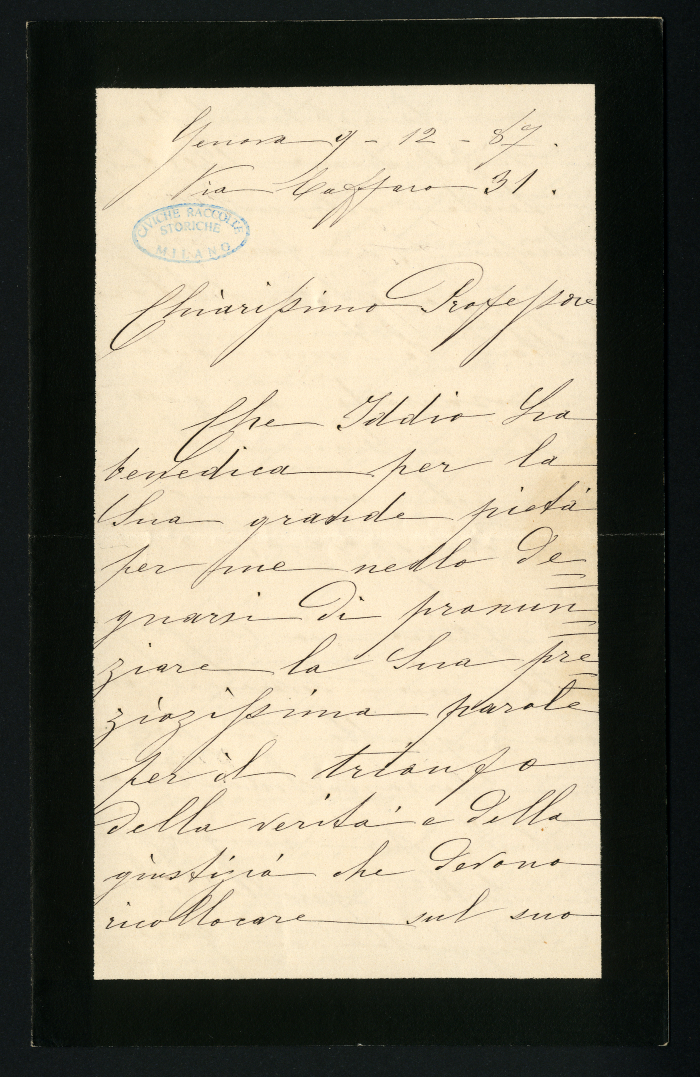 Genova 9 - 12 - 87.
Via Caffaro 31.
CIVICHE RACCOLTE
STORICHE
MILANO
Chiarissimo Professore
Che Iddio La
benedica per la
Sua grande pietà
per me nello de=
gnarsi di pronun=
ziare la Sua pre=
ziozissima parola
per il trionfo
della verità e della
giustizia che devono
ricollocare sul suo